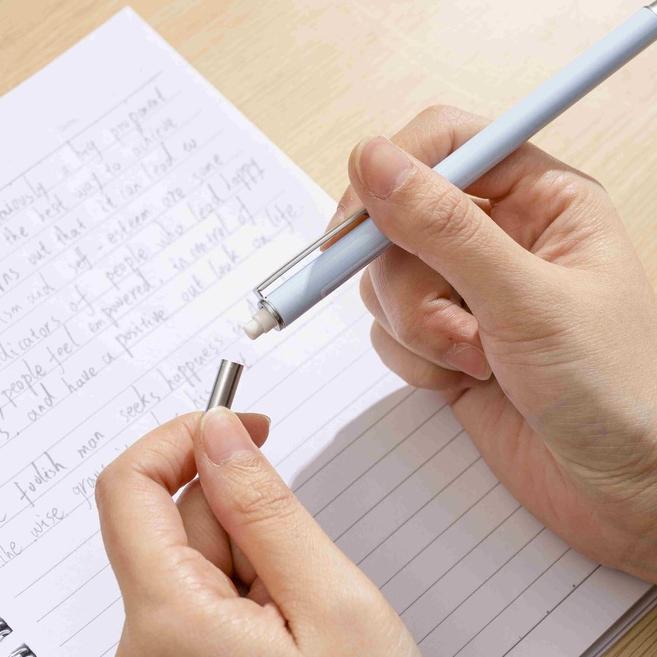 a big proposal
the best way to achieve
out that it can lead to
self-esteem are some
indicators of people who lead happy
people feel empowered, in control of
and have a positive out look on life
foolish man seeks happiness
the wise